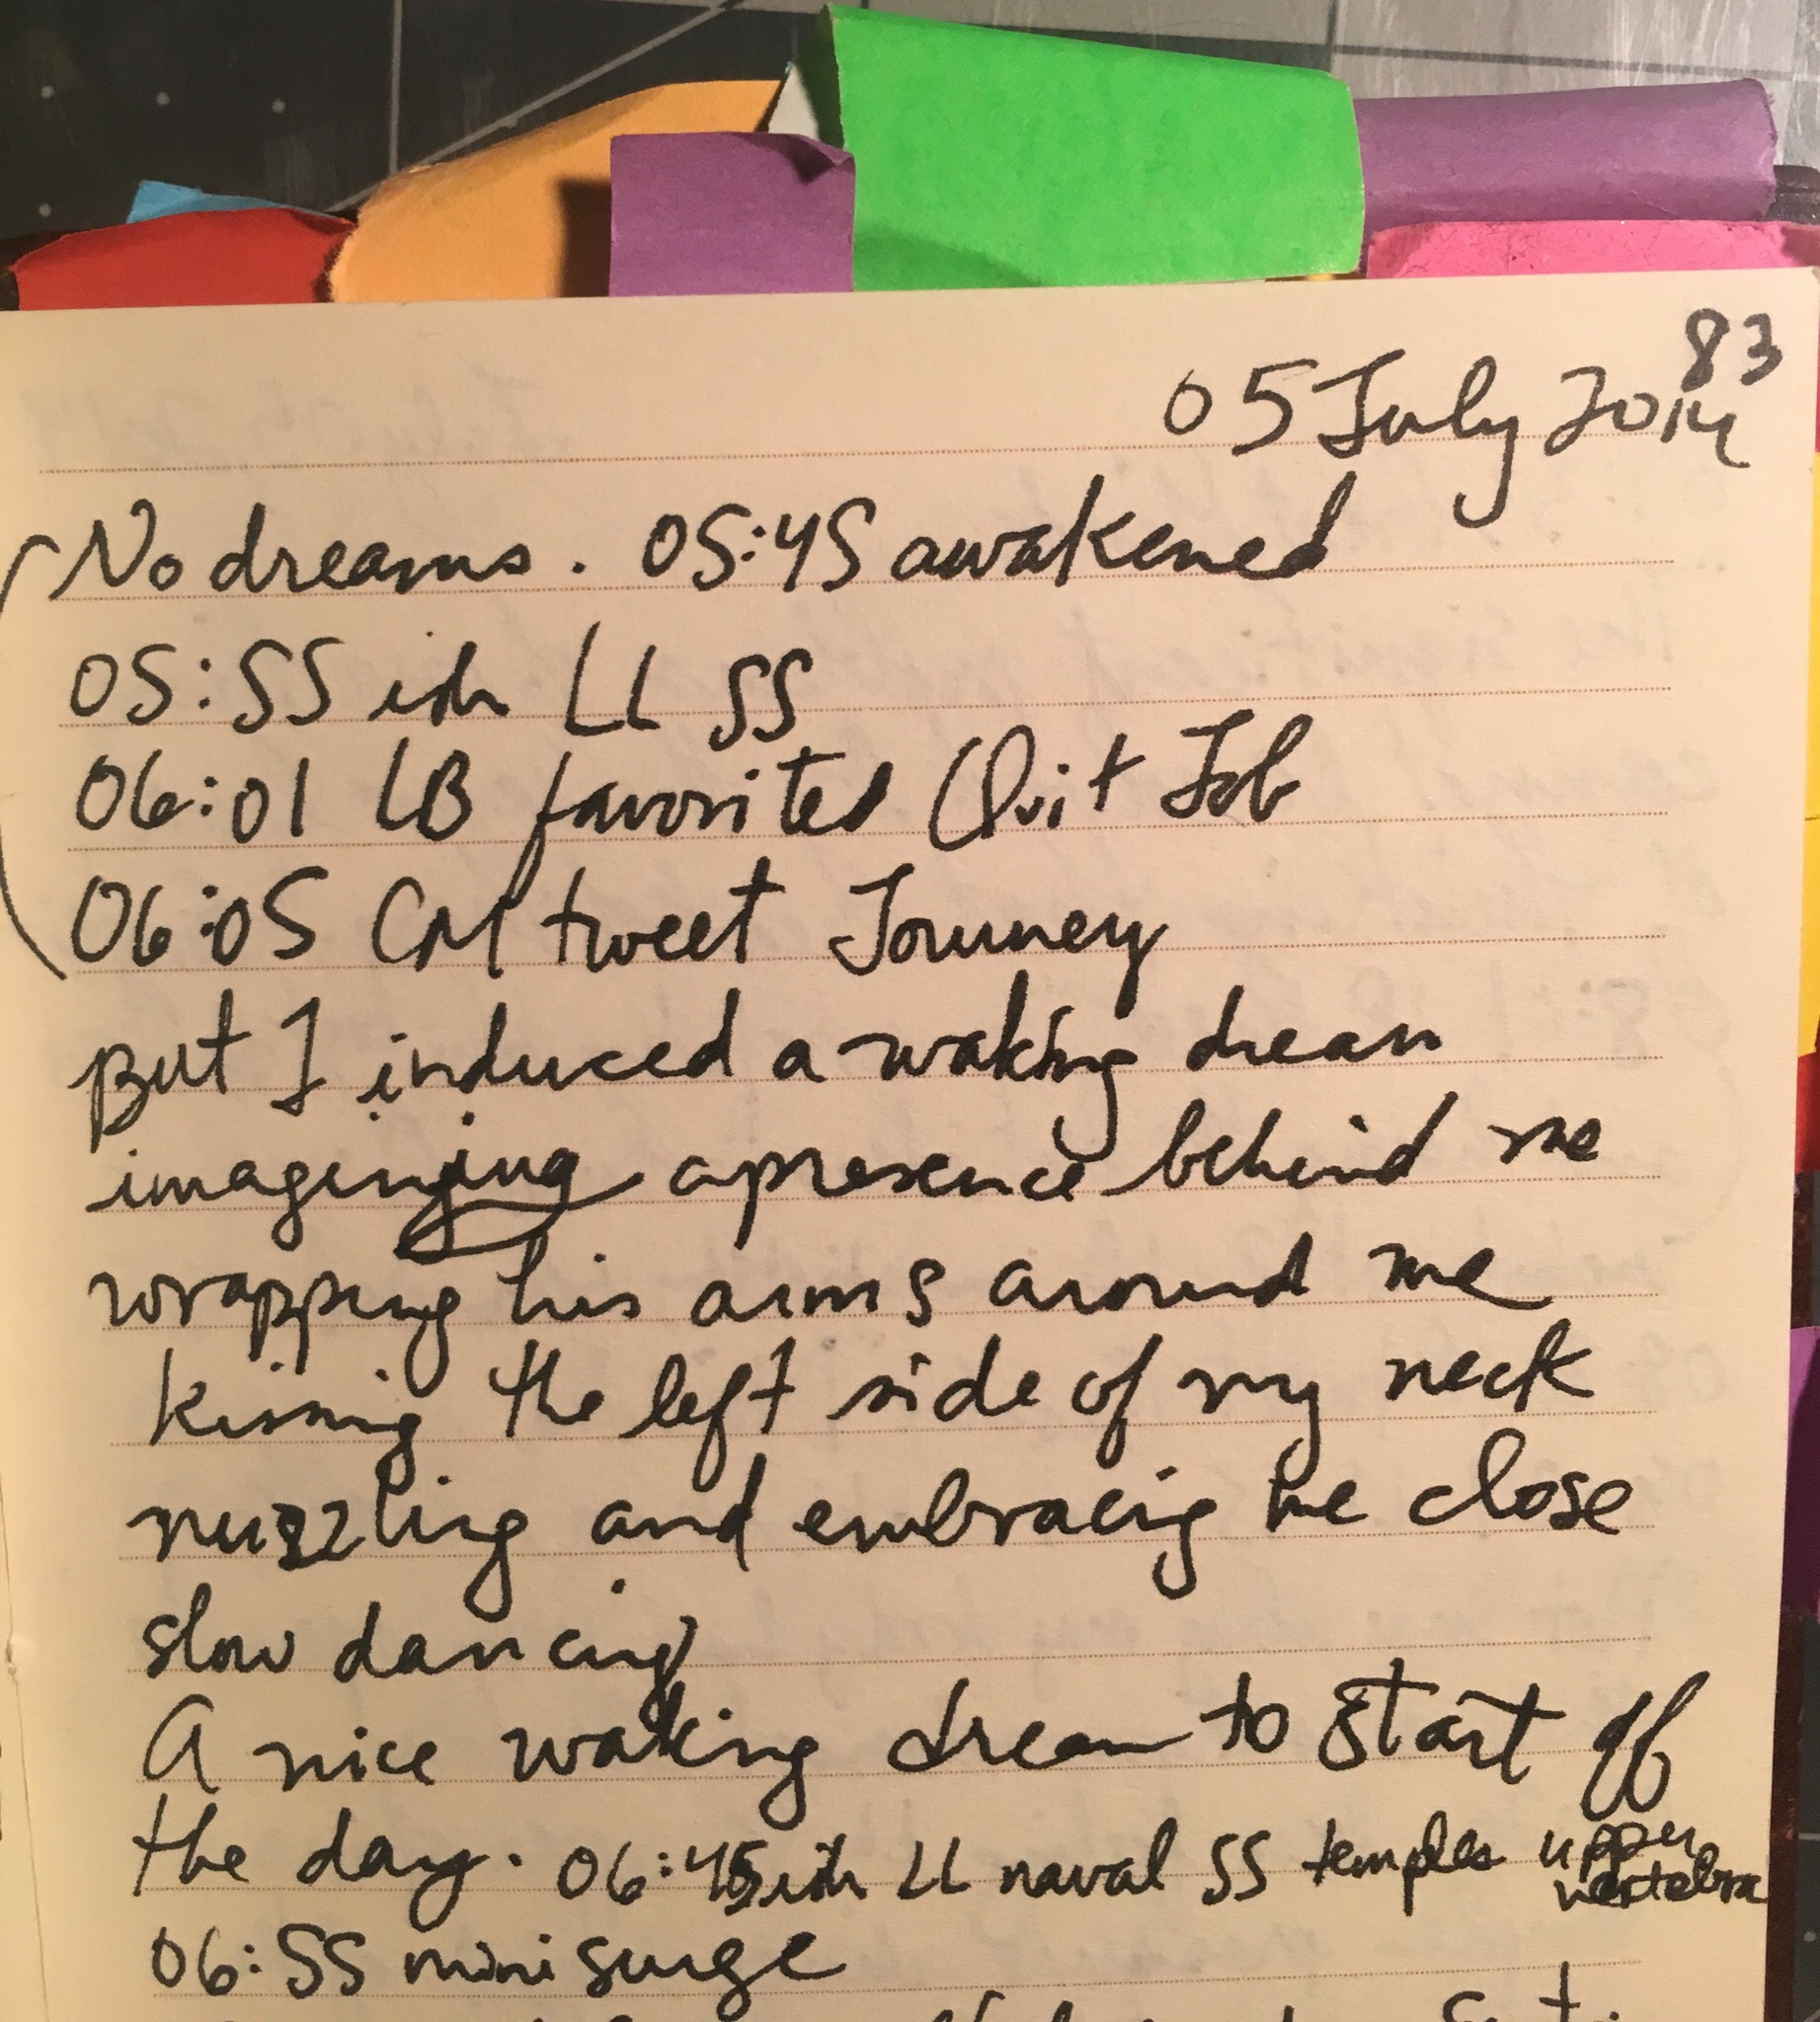 83
05 July 2014
No dreams. 05:45 awakened
05:55 ish LL SS
06:01 LB favorited Quit Job
06:05 CM tweet Journey
But I induced a waking dream
imagenging a presence behind me
wrapping his arms around me
kissing the left side of my neck
nuzzling and embracing me close
slow dancing
A nice waking dream to start off
the day. 06:45 ish LL naval SS temples upper
vertebra
06:55 mini surge